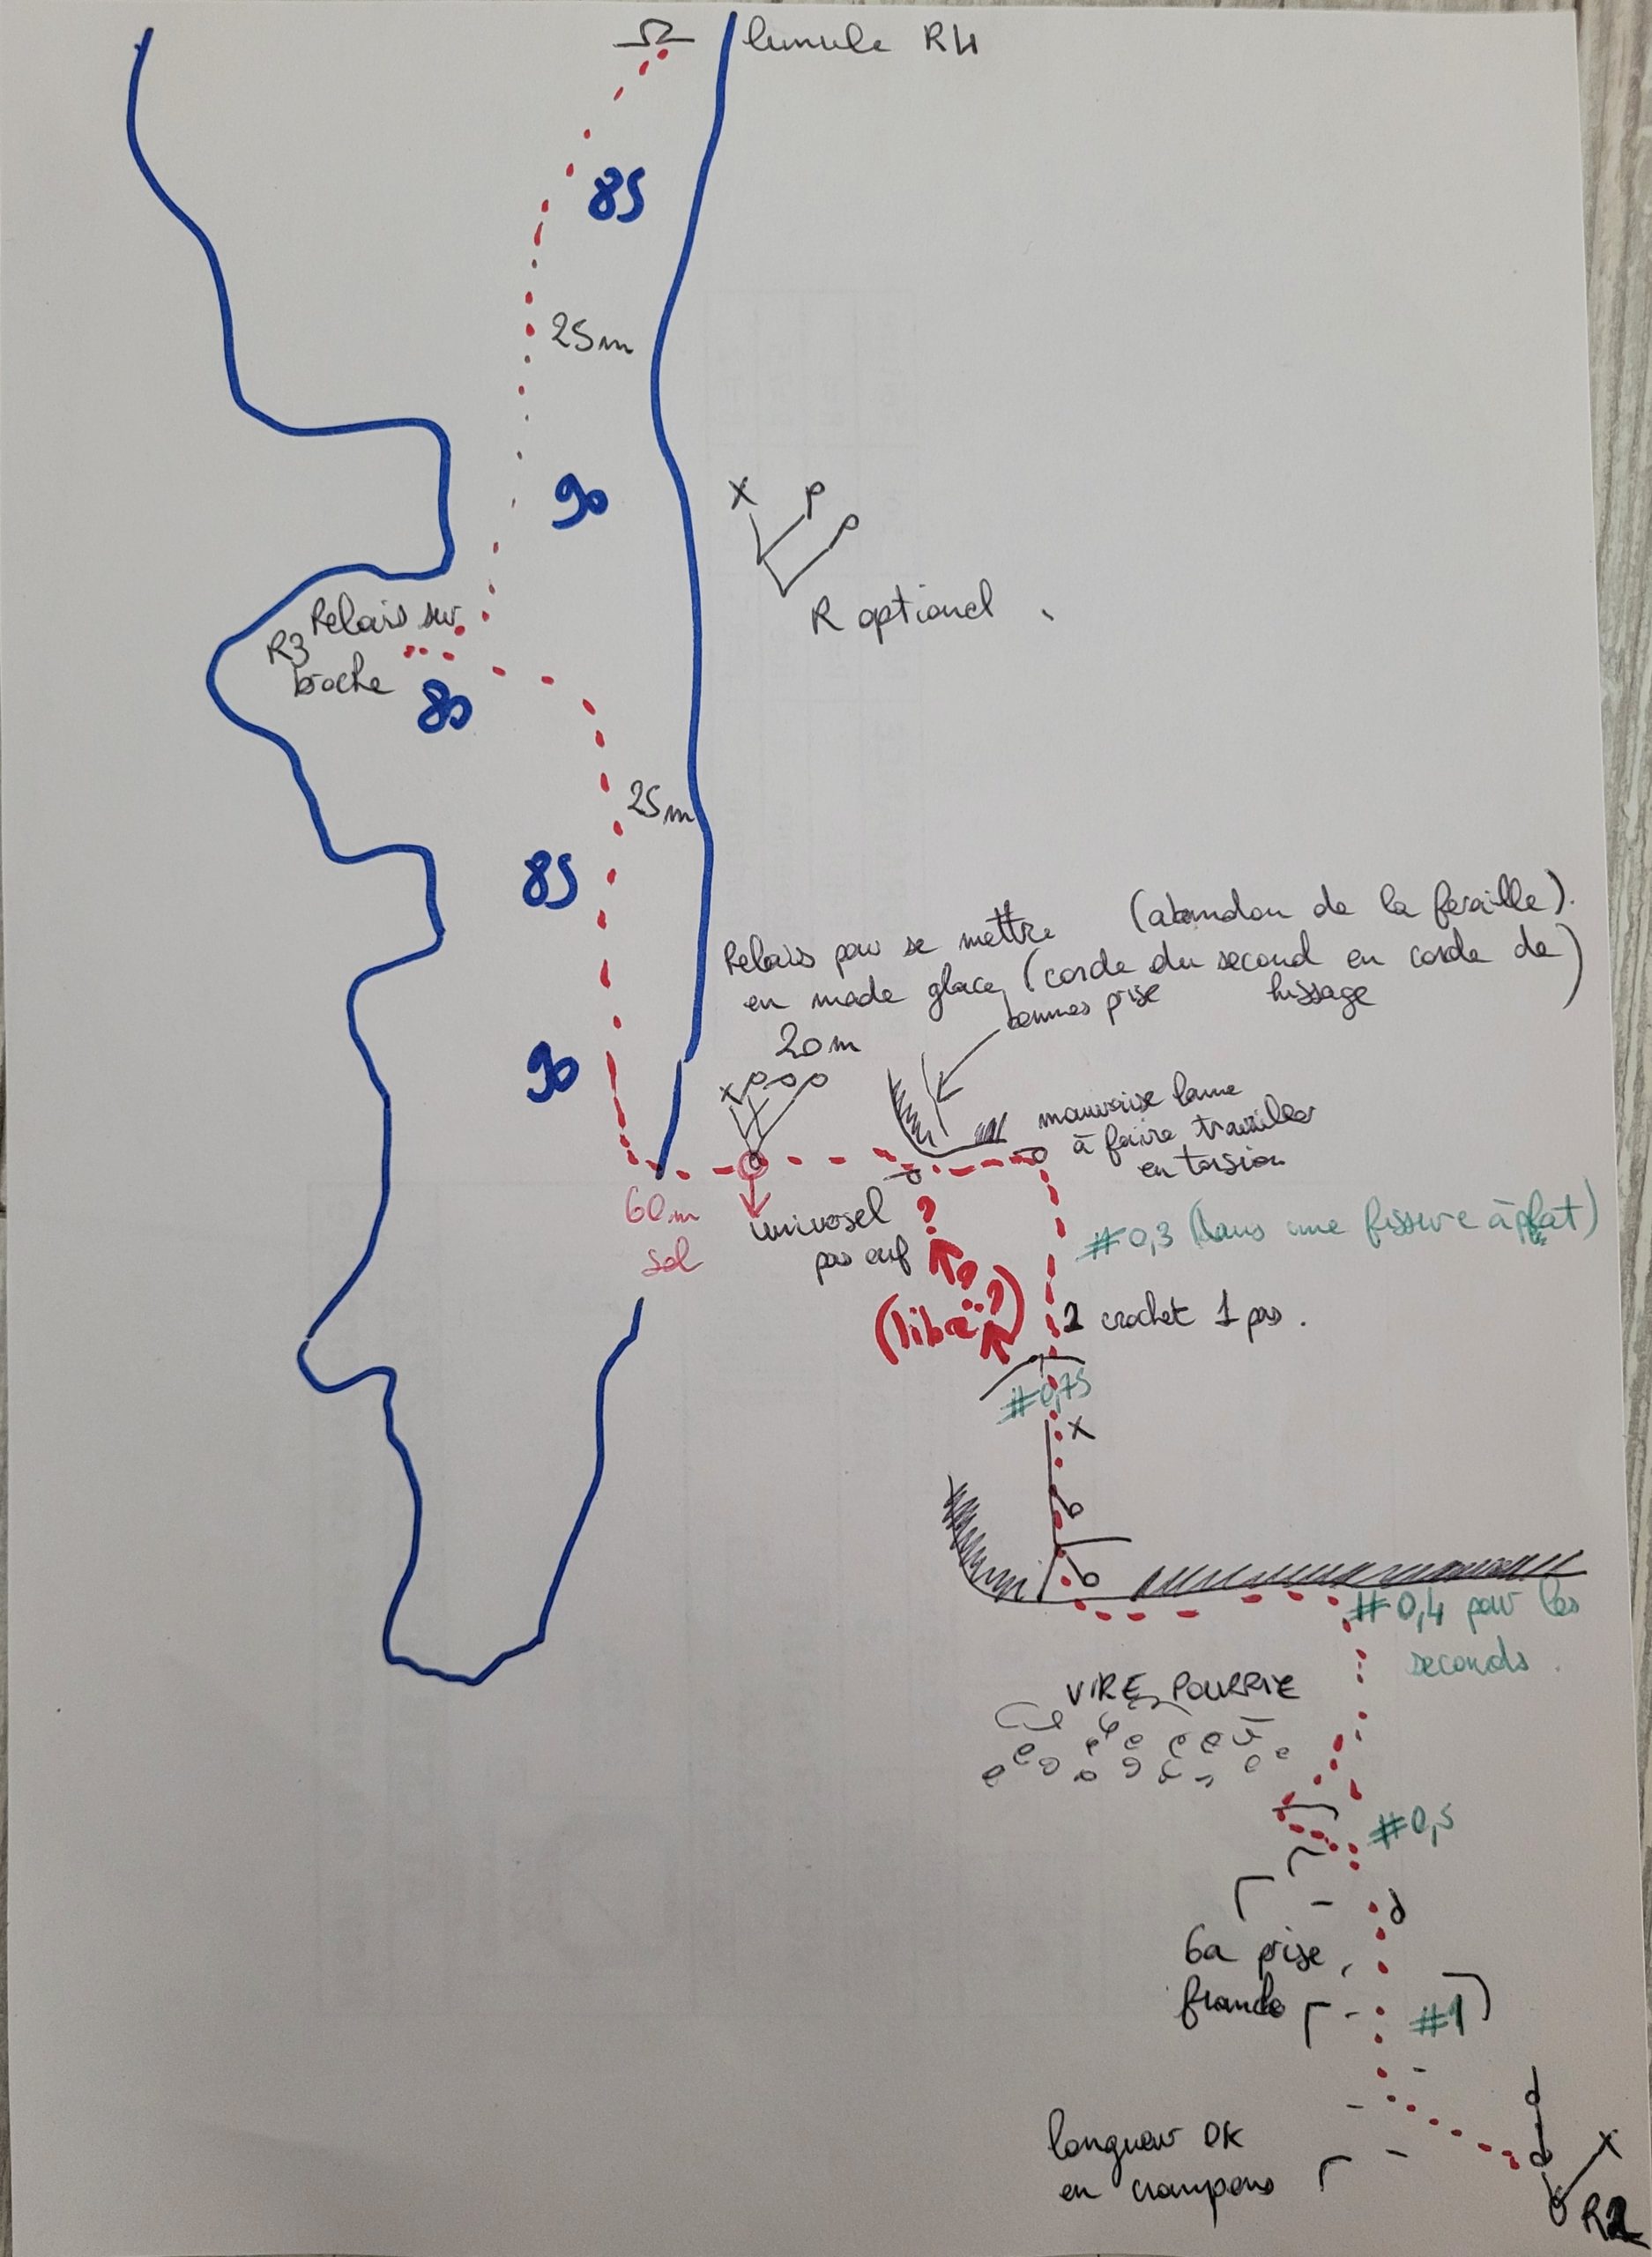 lunule R4
85
25m
90
X
R optionel
Relais sur
R3
broche
80
25m
85
(abandon de la feraille).
Relais pour se mettre
en mode glace (corde du second en corde de
hissage)
bonnes prise
20m
90
X
mauvaise lame
à faire travailler
en torsion
60m
sol
univosel
pas ouf
?
#0,3 (dans une fissure à plat)
(libre ?)
1 crochet 1 pas.
#0,75
X
#0,4 pour les
seconds.
VIRE POURRIE
#0,5
6a prise
franche
#1
longueur OK
en crampons
X
R2